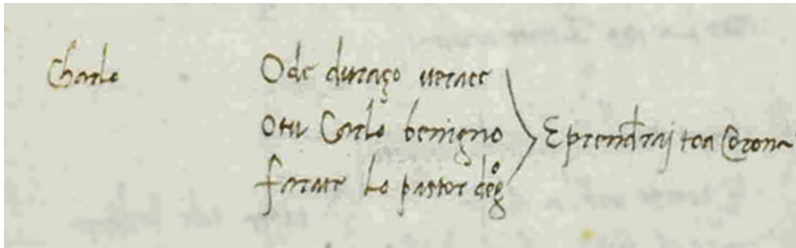 Charlo
O de duraço verace
o tu Carlo benigno
farate Lo pastor
E prenderaj toa Corona